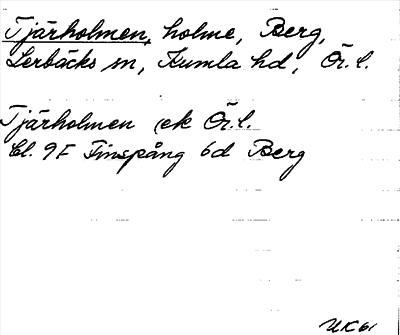 Tjärholmen, holme, Berg,
Lerbäcks sn, Kumla hd, Ör. l.
Tjärholmen (ek Ör. l.
Bl. 9F Finspång 6d Berg
UK 61